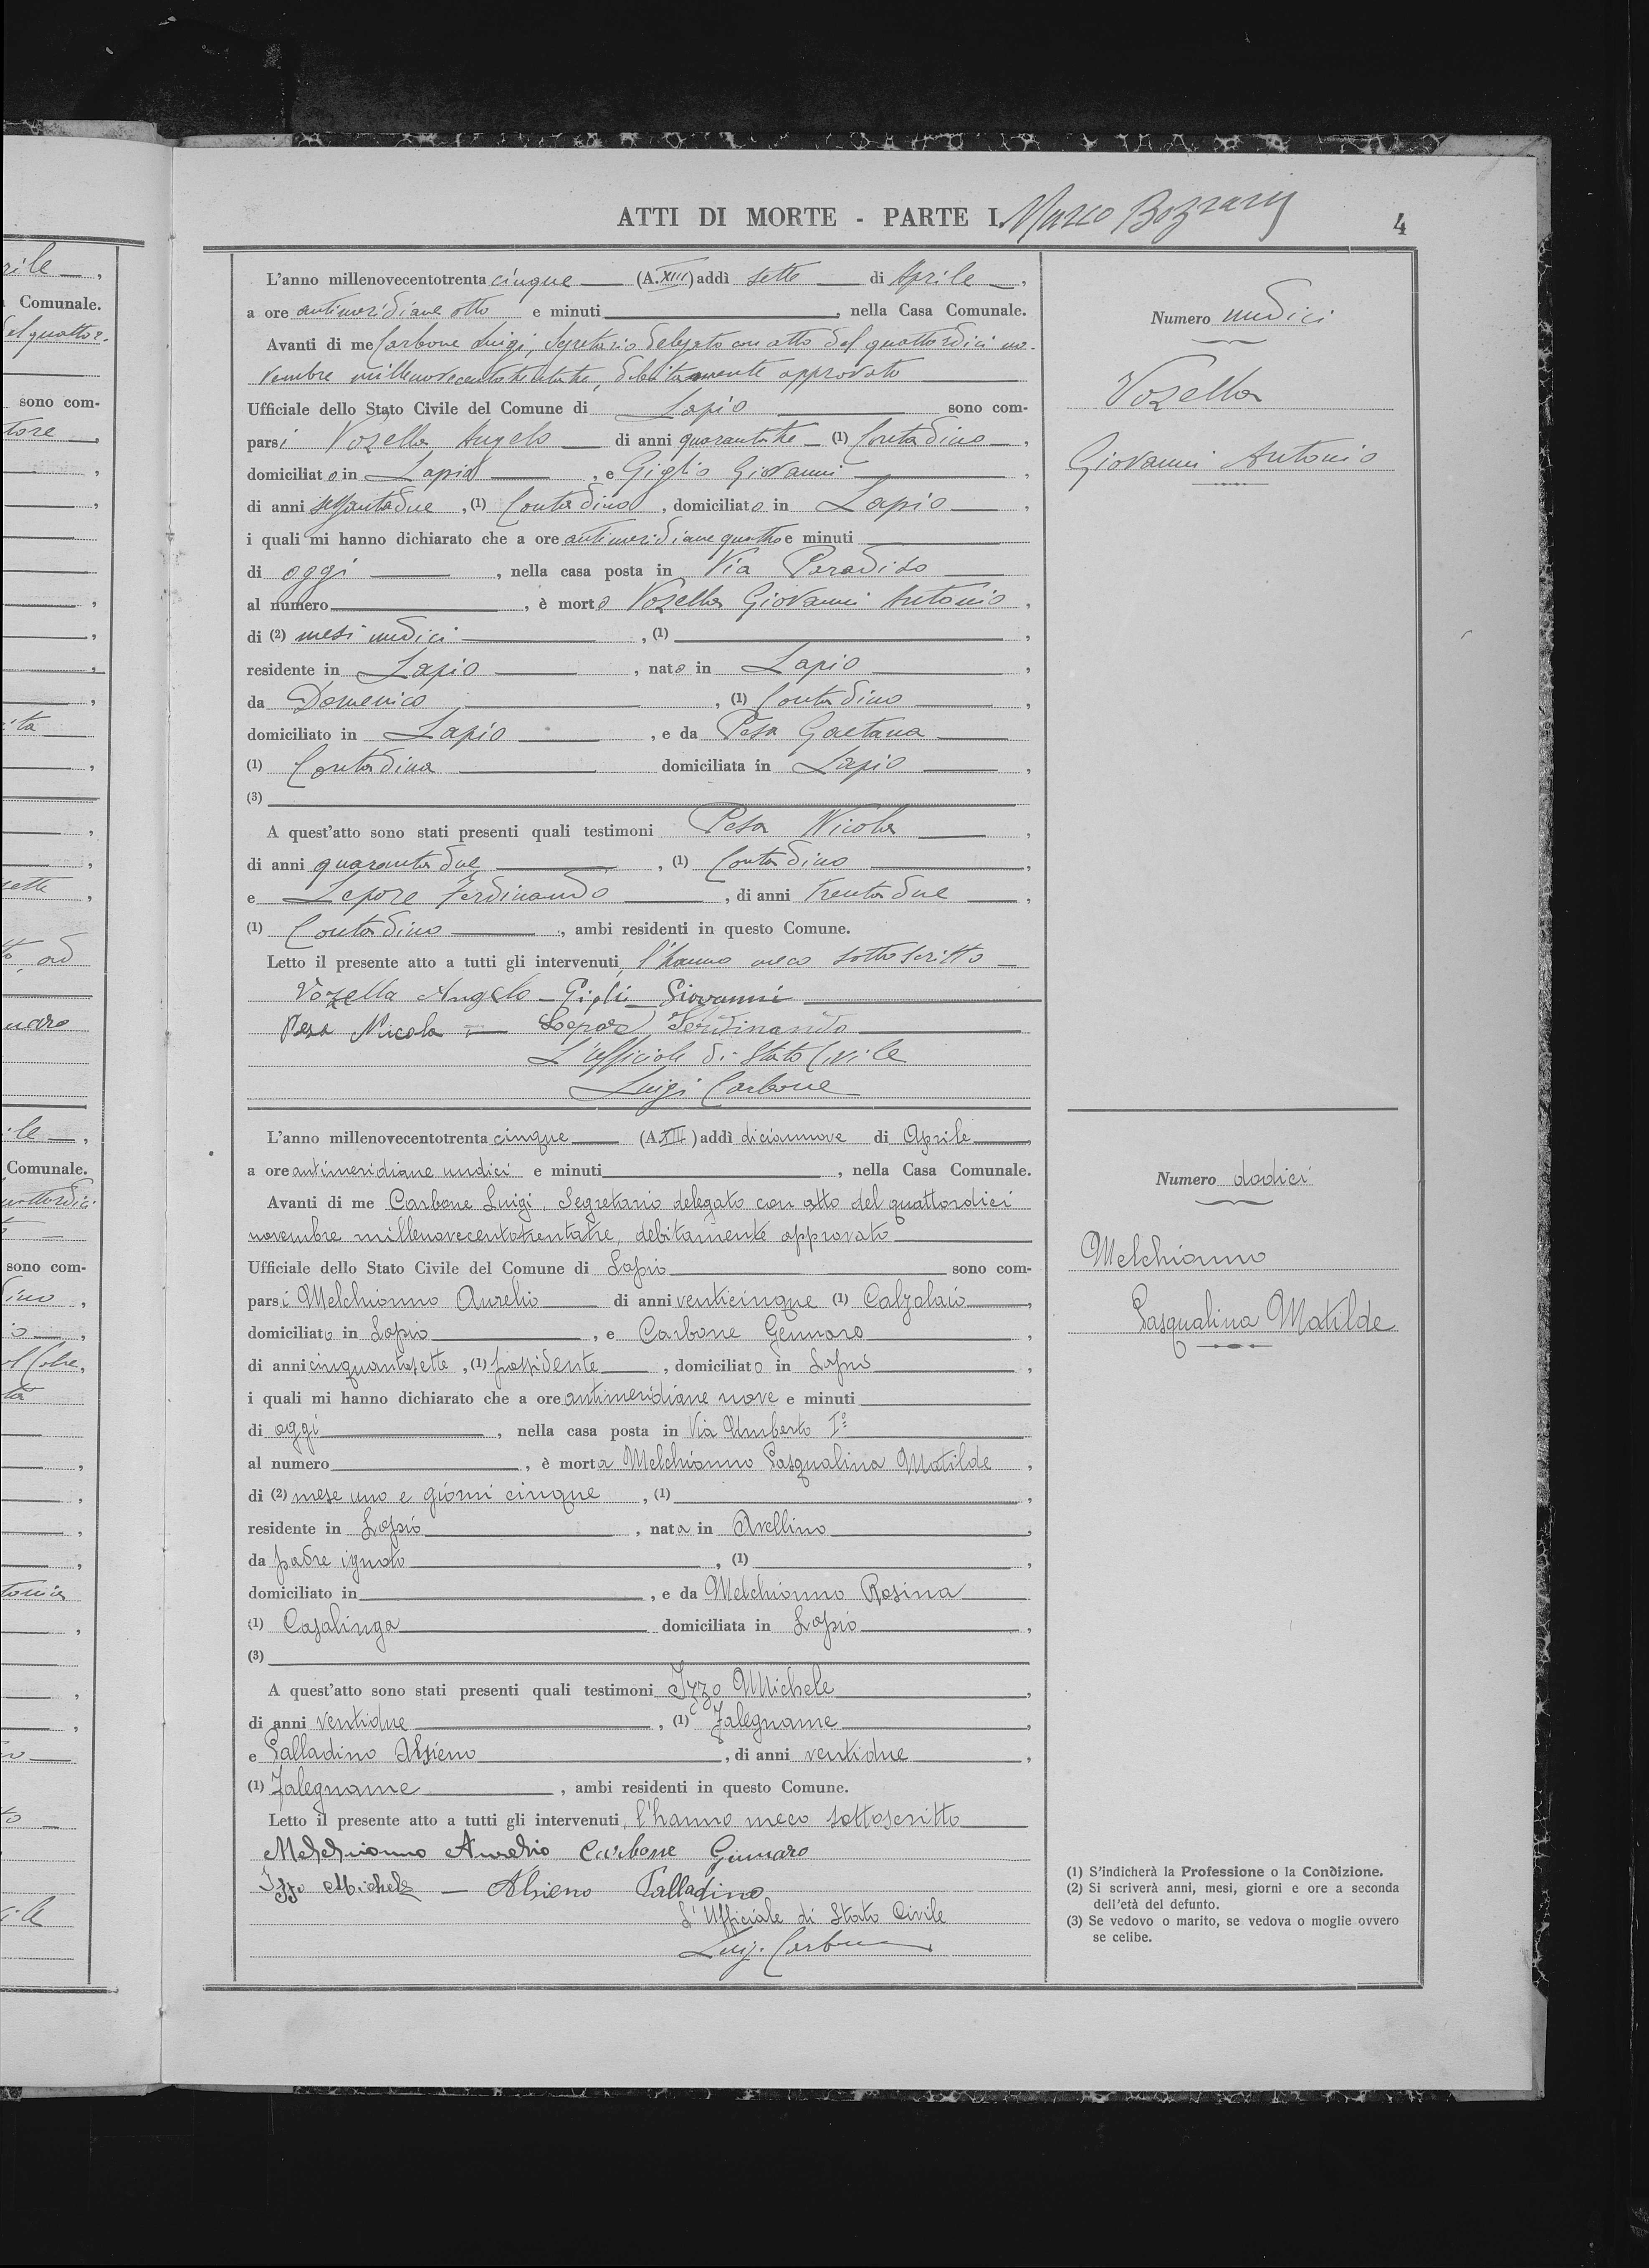 ATTI DI MORTE - PARTE I. Marco Bozzaris
4
L'anno millenovecentotrenta cinque (A. XIII) addì sette di Aprile,
a ore antimeridiane otto e minuti , nella Casa Comunale.
Avanti di me Carbone Luigi, Segretario delegato con atto del quattordici no-
vembre millenovecentotrentatre, debitamente approvato
Ufficiale dello Stato Civile del Comune di Lapio sono com-
parsi Vozella Angelo di anni quarantatre (1) Contadino,
domiciliato in Lapio, e Giglio Giovanni,
di anni sessantadue, (1) Contadino, domiciliato in Lapio,
i quali mi hanno dichiarato che a ore antimeridiane quattro e minuti
di oggi, nella casa posta in Via Paradiso
al numero , è morto Vozella Giovanni Antonio,
di (2) mesi undici, (1) ,
residente in Lapio, nato in Lapio,
da Domenico, (1) Contadino,
domiciliato in Lapio, e da Pesa Gaetana
(1) Contadina domiciliata in Lapio,
(3)
A quest'atto sono stati presenti quali testimoni Pesa Nicola,
di anni quarantadue, (1) Contadino,
e Lepore Ferdinando, di anni trentadue,
(1) Contadino, ambi residenti in questo Comune.
Letto il presente atto a tutti gli intervenuti, l'hanno meco sottoscritto
Vozella Angelo - Gigli Giovanni
Pesa Nicola - Lepore Ferdinando
L'Ufficiale di Stato Civile
Luigi Carbone
Numero undici
Vozella
Giovanni Antonio
L'anno millenovecentotrenta cinque (A. XIII) addì diciannove di Aprile,
a ore antimeridiane undici e minuti , nella Casa Comunale.
Avanti di me Carbone Luigi, Segretario delegato con atto del quattordici
novembre millenovecentotrentatre, debitamente approvato
Ufficiale dello Stato Civile del Comune di Lapio sono com-
parsi Melchionno Aurelio di anni venticinque (1) Calzolaio,
domiciliato in Lapio, e Carbone Gennaro,
di anni cinquantasette, (1) possidente, domiciliato in Lapio,
i quali mi hanno dichiarato che a ore antimeridiane nove e minuti
di oggi, nella casa posta in Via Umberto I°
al numero , è morta Melchionno Pasqualina Matilde,
di (2) mese uno e giorni cinque, (1) ,
residente in Lapio, nata in Avellino,
da padre ignoto, (1) ,
domiciliato in , e da Melchionno Rosina
(1) Casalinga domiciliata in Lapio,
(3)
A quest'atto sono stati presenti quali testimoni Izzo Michele,
di anni ventidue, (1) Falegname,
e Palladino Alsieno, di anni ventidue,
(1) Falegname, ambi residenti in questo Comune.
Letto il presente atto a tutti gli intervenuti, l'hanno meco sottoscritto
Melchionno Aurelio Carbone Gennaro
Izzo Michele - Alsieno Palladino
L'Ufficiale di Stato Civile
Luigi Carbone
Numero dodici
Melchionno
Pasqualina Matilde
(1) S'indicherà la Professione o la Condizione.
(2) Si scriverà anni, mesi, giorni e ore a seconda
dell'età del defunto.
(3) Se vedovo o marito, se vedova o moglie ovvero
se celibe.